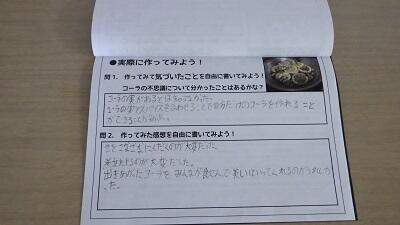 ●実際に作ってみよう！
問1．作ってみて気づいたことを自由に書いてみよう！
コーラの不思議について分かったことはあるかな？
コーラの実があるとはしらなかった。
コーラの実とスパイスを合わせることで自分だけのコーラを作れること
ができること
問2．作ってみた感想を自由に書いてみよう！
のが大変だった。
のが大変だった。
出きあがったコーラをみんなが飲んで美しいといってくれるのがうれしかっ
た。